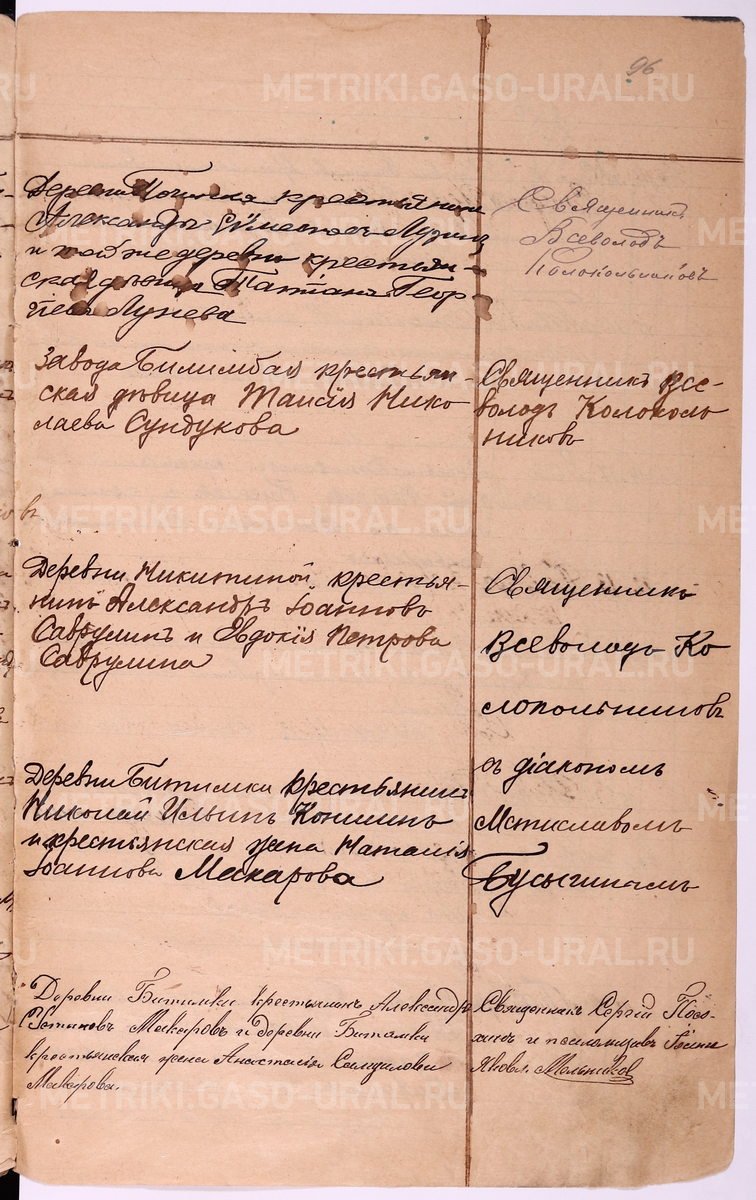 96
METRIKI.GASO-URAL.RU
Деревни крестьянинъ
Александръ
и той же деревни крестьян-
ская дѣвица Татiана Геор-
гiева Лунева
Священникъ
Всеволодъ
Колокольниковъ
Завода Билимбая крестьян-
ская дѣвица Таисiя Нико
лаева Сундукова
Священникъ Все-
володъ Колоколь
никовъ
въ
METRIKI.GASO-URAL.RU
Деревни Никитиной, крестья-
нинъ Александръ Iоанновъ
Саврулинъ и Евдокiя Петрова
Саврулина
Священникъ
Всеволодъ Ко
локольниковъ
съ дiакономъ
Мстиславомъ
Бусыгинымъ
Деревни Битимки крестьянинъ
Николай Ильинъ Конинъ
и крестьянская жена Наталiя
Iоаннова Макарова
METRIKI.GASO-URAL.RU
Деревни Битимки крестьянинъ Александръ
Устиновъ Макаровъ и деревни Битимки
крестьянская жена Анастасiя Самуилова
Макарова.
Священникъ Сергiй
и псаломщикъ
Яковл. Мельниковъ